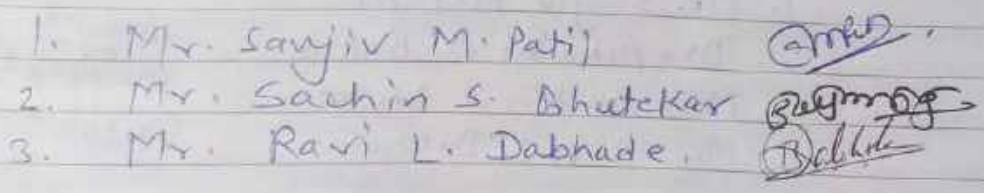 1. Mr. Sanjiv M. Patil
2. Mr. Sachin S. Bhutekar
3. Mr. Ravi L. Dabhade.